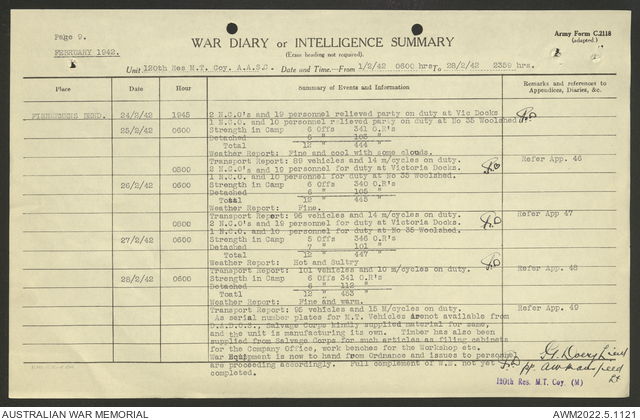 Page 9.
FEBRUARY 1942.
WAR DIARY or INTELLIGENCE SUMMARY
(Erase heading not required).
Army Form C.2118
(adapted.)
Unit 120th Res M.T. Coy. A.A.S.C. Date and Time.—From 1/2/42 0600 hrs To 28/2/42 2359 hrs.
Place Date Hour Summary of Events and Information Remarks and references to Appendices, Diaries, &c.
FISHERMENS BEND. 24/2/42 1945 2 N.C.O's and 19 personnel relieved party on duty at Vic Docks
1 N.C.O. and 10 personnel relieved party on duty at No 35 Woolshed.
25/2/42 0600 Strength in Camp 6 Offs 341 O.R's
Detached 6 " 103 "
Total 12 " 444 "
Weather Report: Fine and cool with some clouds.
Transport Report: 89 vehicles and 14 m/cycles on duty. Refer App. 46
0800 2 N.C.O's and 19 personnel for duty at Victoria Docks.
1 N.C.O. and 10 personnel for duty at No 35 Woolshed.
26/2/42 0600 Strength in Camp 6 Offs 340 O.R's
Detached 6 " 105 "
Total 12 " 445 "
Weather Report: Fine.
Transport Report: 96 vehicles and 14 m/cycles on duty. Refer App 47
0800 2 N.C.O's and 19 personnel for duty at Victoria Docks.
1 N.C.O. and 10 personnel for duty at No 35 Woolshed.
27/2/42 0600 Strength in Camp 5 Offs 346 O.R's
Detached 7 " 101 "
Total 12 " 447 "
Weather Report: Hot and Sultry
Transport Report: 101 vehicles and 10 m/cycles on duty. Refer App. 48
28/2/42 0600 Strength in Camp 6 Offs 341 O.R's
Detached 6 " 112 "
Toatl 12 " 453 "
Weather Report: Fine and warm.
Transport Report: 95 vehicles and 15 M/cycles on duty. Refer App. 49
As serial number plates for M.T. Vehicles are not available from
D.A.D.O.S., Salvage Corps kindly supplied material for same,
and the unit is manufacturing its own. Timber has also been
supplied from Salvage Corps for such articles as filing cabinets
for the Company Office, work benches for the Workshop etc.
War Equipment is now to hand from Ordnance and issues to personnel
are proceeding accordingly. Full complement of W.E. not yet
completed.
120th Res. M.T. Coy (M)
AUSTRALIAN WAR MEMORIAL
AWM2022.5.1121